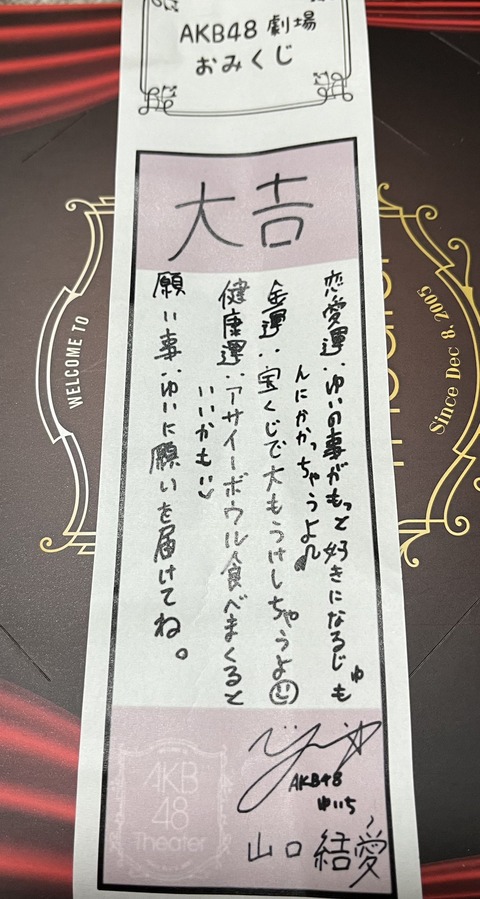 AKB48 劇場
おみくじ
大吉
恋愛運:ゆいの事がもっと好きになるじゅも
んにかかっちゃうよ♪
金運:宝くじで大もうけしちゃうよ
健康運:アサイーボウル食べまくると
いいかも
願い事:ゆいに願いを届けてね。
AKB48
ゆいち
山口 結愛
AKB
48
Theater
WELCOME TO
Since Dec 8, 2005